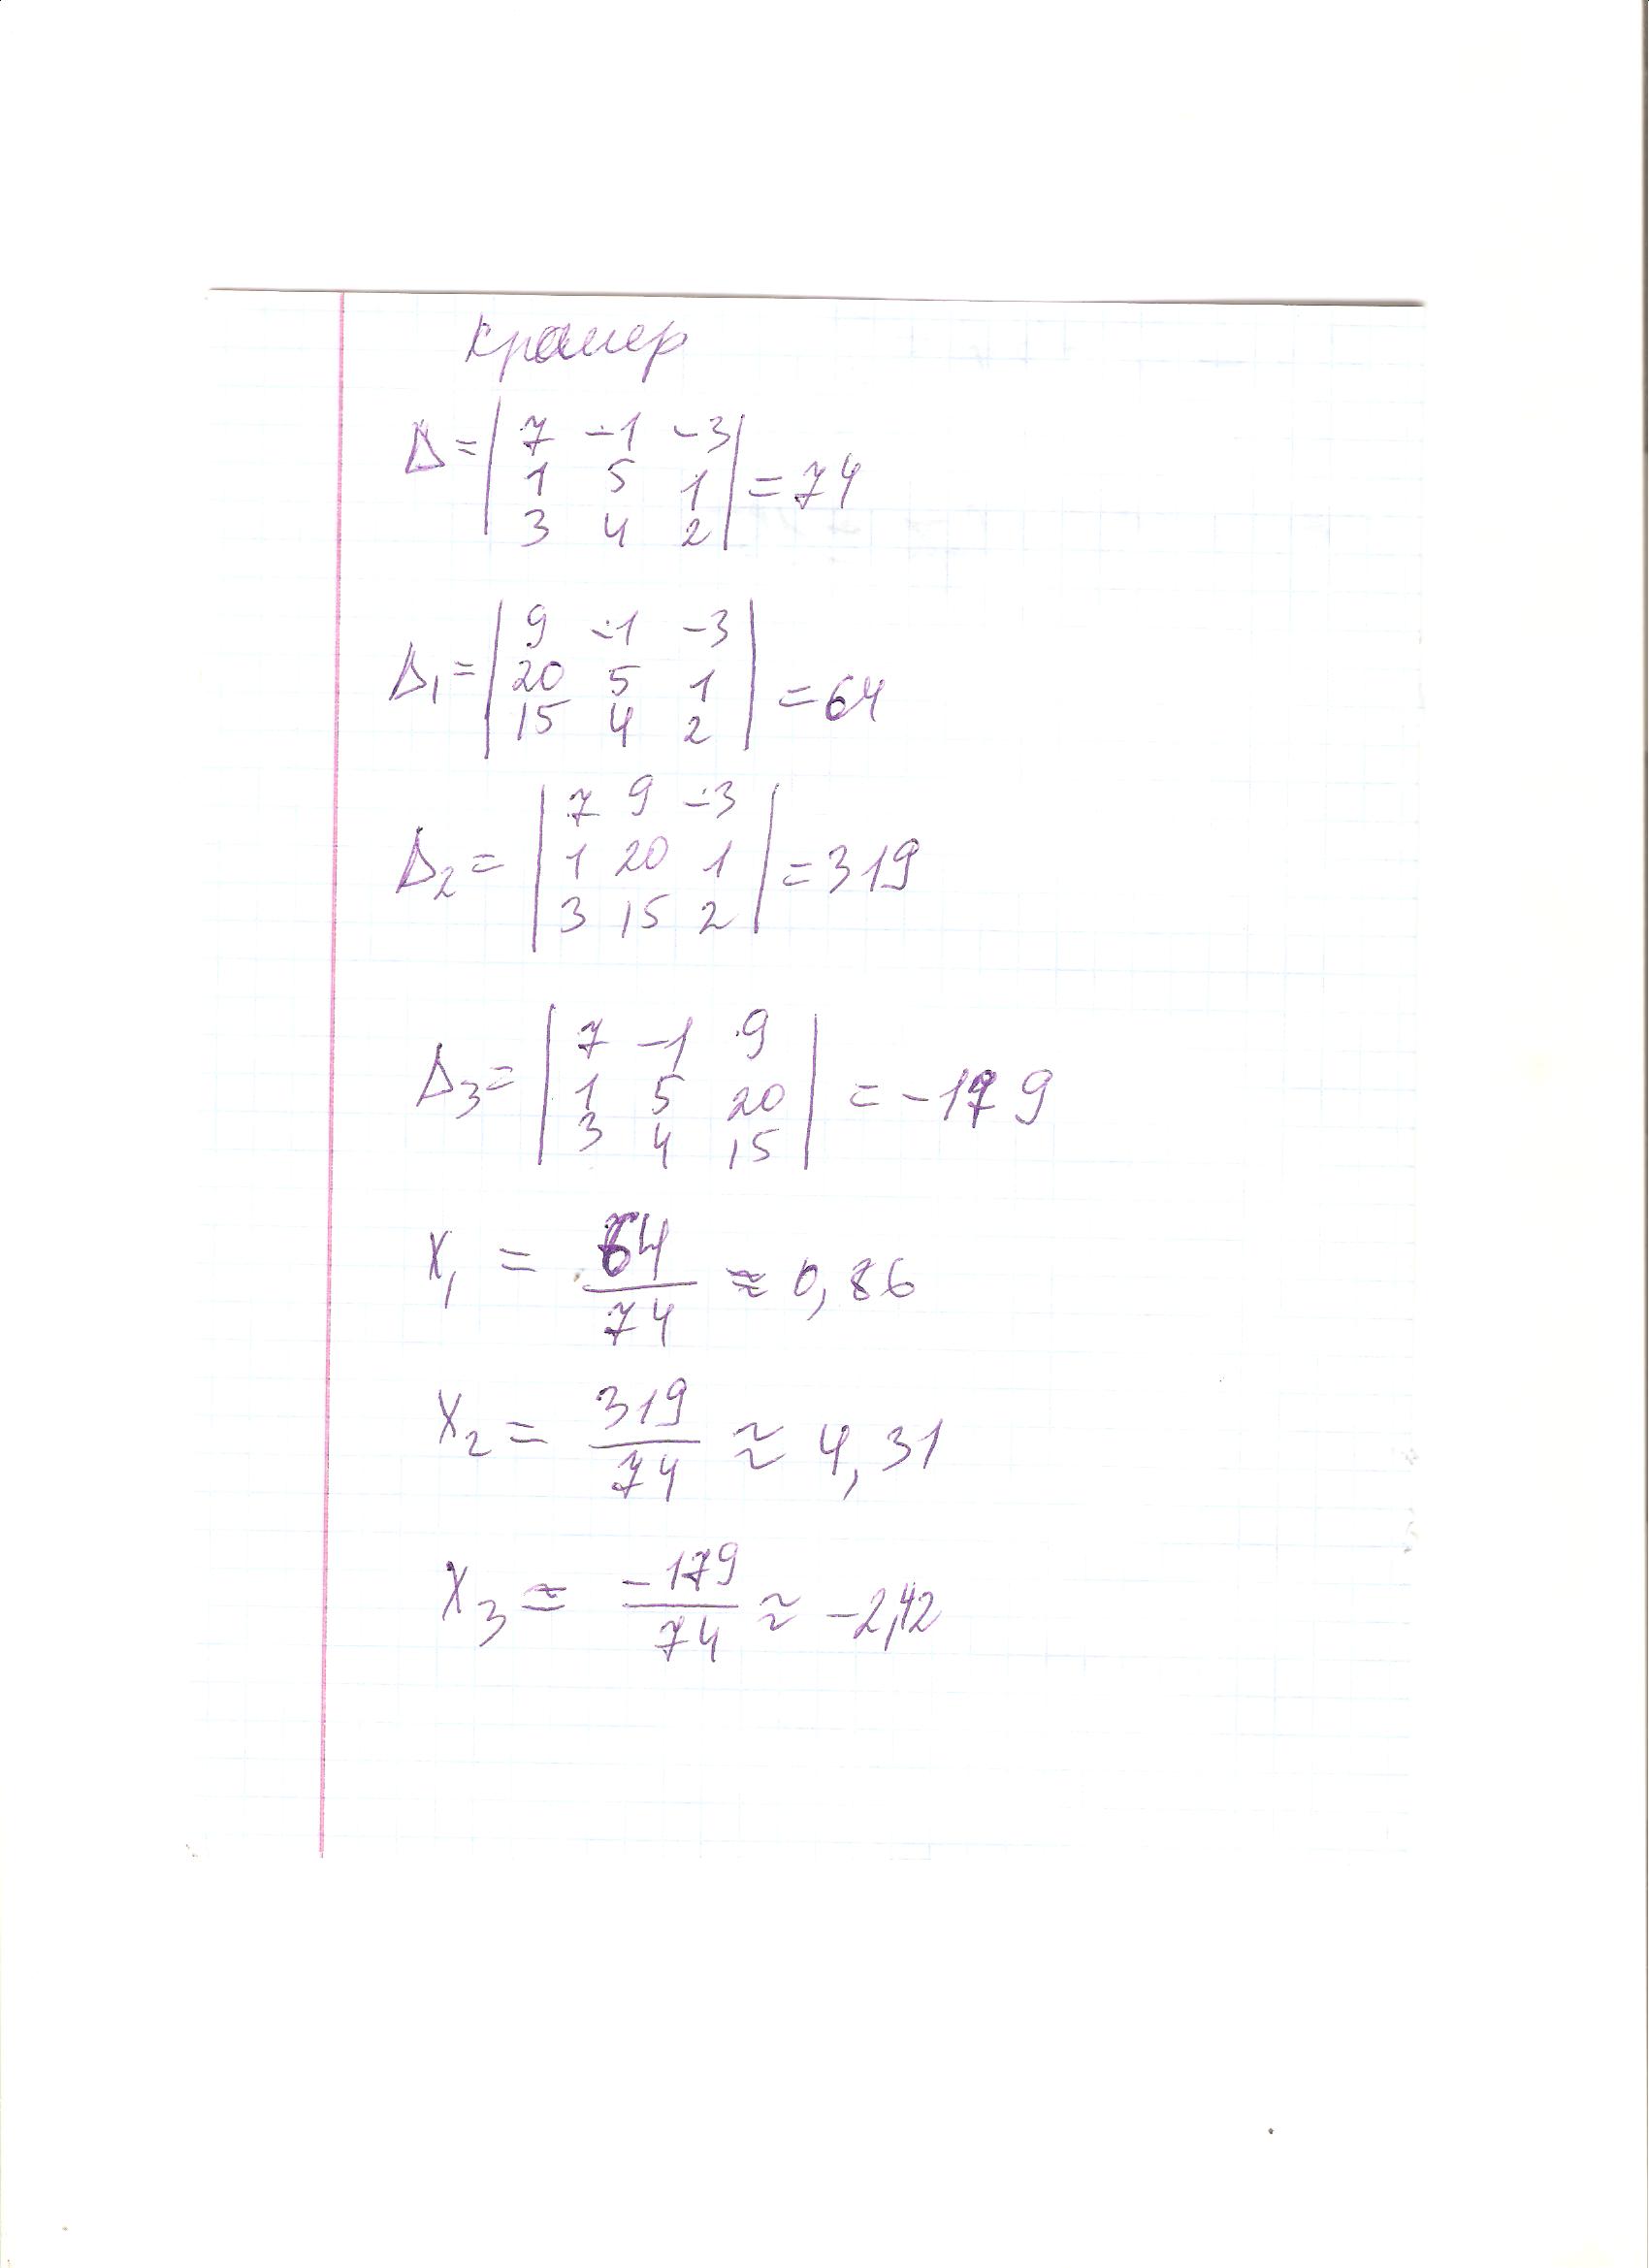 Крамер
Δ = | 7 −1 −3 |
| 1 5 1 | = 74
| 3 4 2 |
Δ1 = | 9 −1 −3 |
| 20 5 1 | = 64
| 15 4 2 |
Δ2 = | 7 9 −3 |
| 1 20 1 | = 319
| 3 15 2 |
Δ3 = | 7 −1 9 |
| 1 5 20 | = −179
| 3 4 15 |
X1 = 64/74 ≈ 0,86
X2 = 319/74 ≈ 4,31
X3 ≈ −179/74 ≈ −2,42